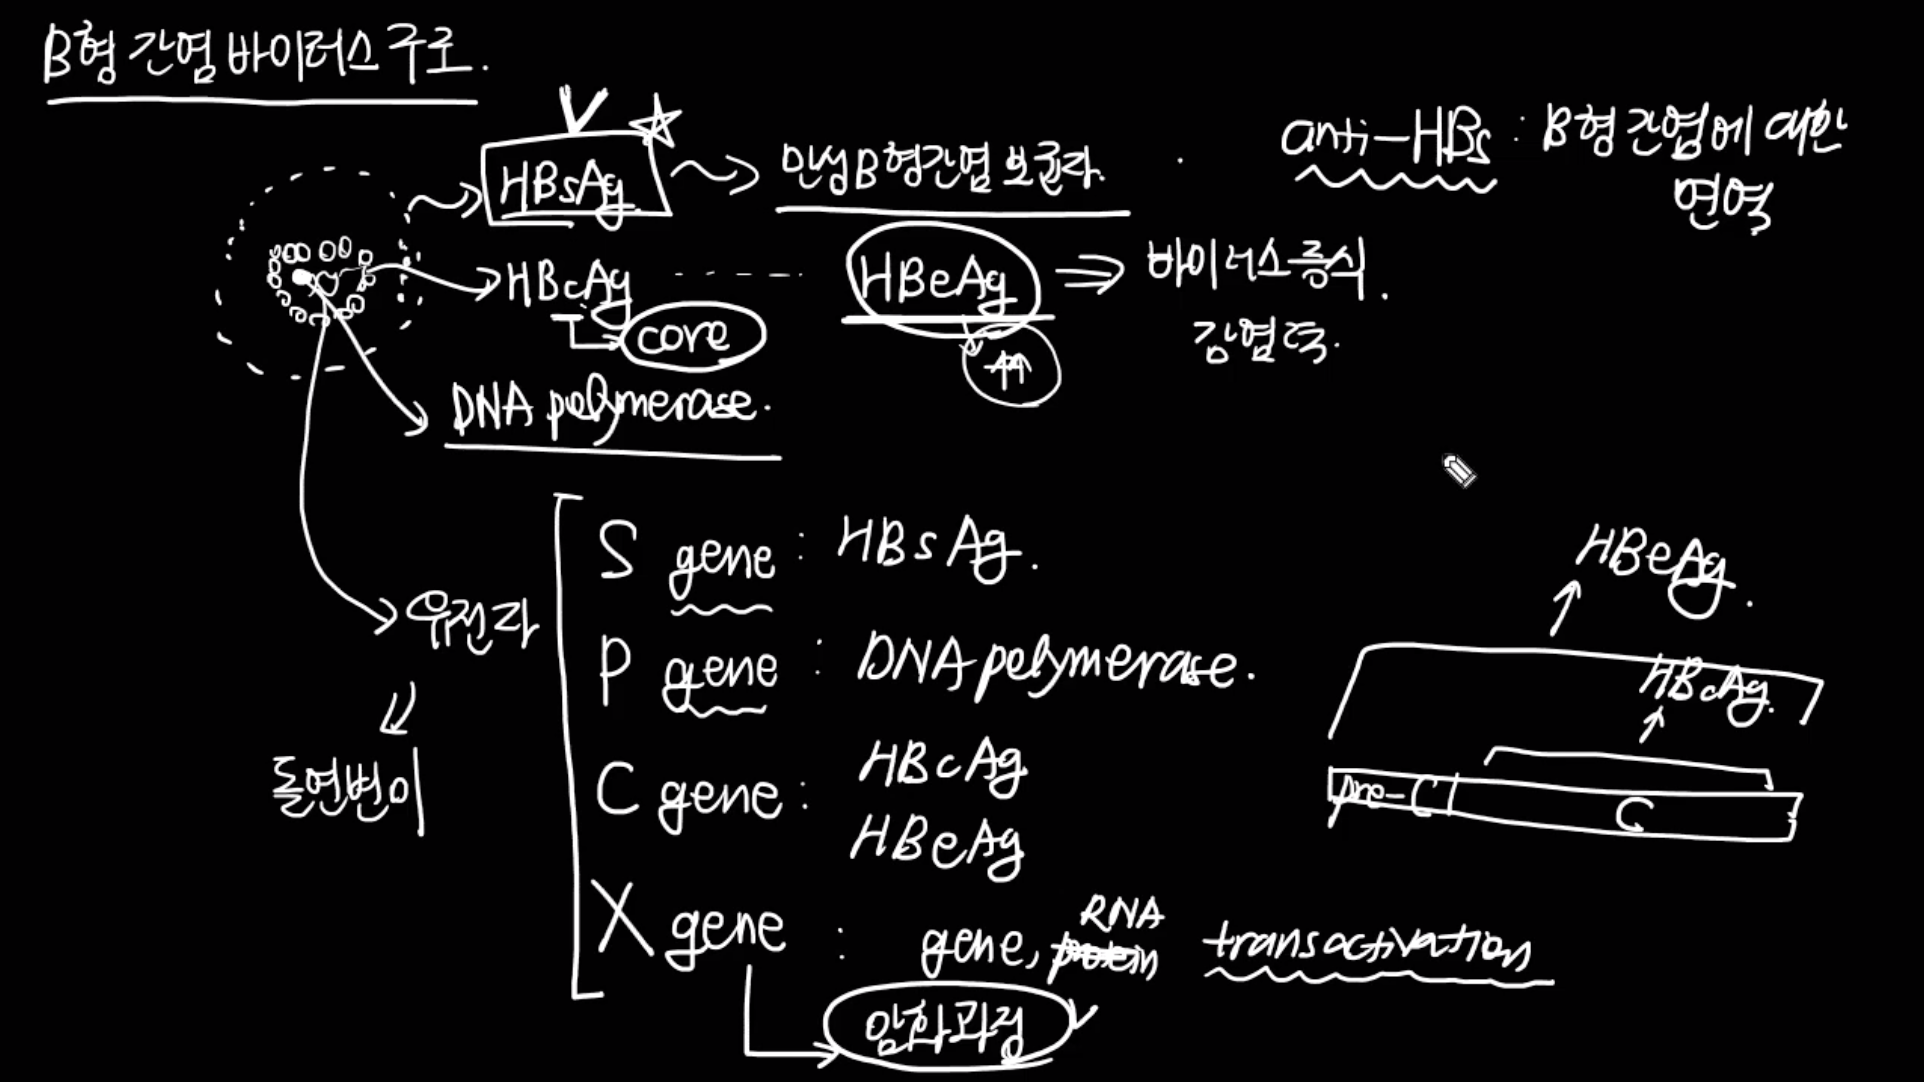 B형 간염 바이러스 구조.
HBsAg
만성 B형간염 보균자.
anti-HBs : B형 간염에 대한
면역
HBcAg
HBeAg
바이러스 증식
감염력.
core
DNA polymerase.
유전자
돌연변이
S gene : HBsAg.
P gene : DNA polymerase.
C gene : HBcAg
HBeAg
X gene : gene, RNA transactivation
암화과정
HBeAg.
HBcAg.
pre-C
C